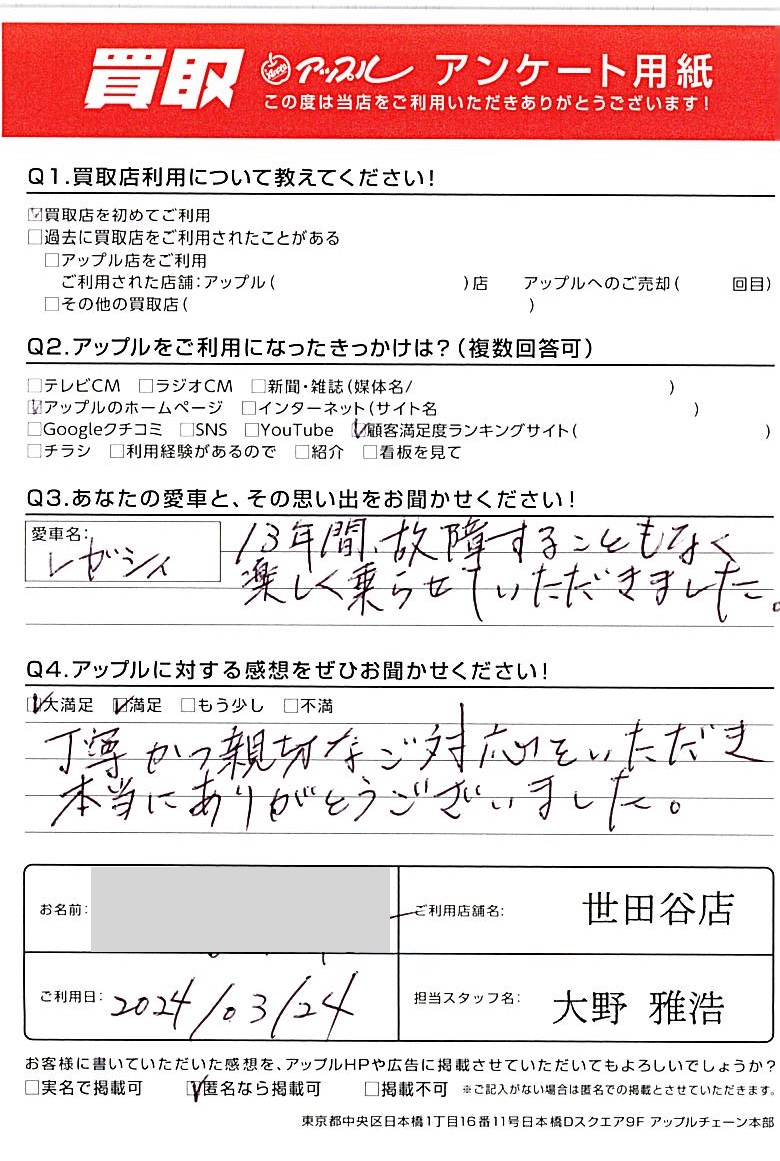 買取 アップル アンケート用紙
この度は当店をご利用いただきありがとうございます!
Q1.買取店利用について教えてください!
☑買取店を初めてご利用
□過去に買取店をご利用されたことがある
□アップル店をご利用
ご利用された店舗:アップル( )店 アップルへのご売却( 回目)
□その他の買取店( )
Q2.アップルをご利用になったきっかけは?(複数回答可)
□テレビCM □ラジオCM □新聞・雑誌(媒体名/ )
☑アップルのホームページ □インターネット(サイト名 )
□Googleクチコミ □SNS □YouTube ☑顧客満足度ランキングサイト( )
□チラシ □利用経験があるので □紹介 □看板を見て
Q3.あなたの愛車と、その思い出をお聞かせください!
愛車名:
レガシィ
13年間、故障することもなく
楽しく乗らせていただきました。
Q4.アップルに対する感想をぜひお聞かせください!
☑大満足 ☑満足 □もう少し □不満
丁寧かつ親切なご対応をいただき
本当にありがとうございました。
お名前: ご利用店舗名: 世田谷店
ご利用日: 2024/03/24 担当スタッフ名: 大野 雅浩
お客様に書いていただいた感想を、アップルHPや広告に掲載させていただいてもよろしいでしょうか?
□実名で掲載可 ☑匿名なら掲載可 □掲載不可 ※ご記入がない場合は匿名での掲載とさせていただきます。
東京都中央区日本橋1丁目16番11号日本橋Dスクエア9F アップルチェーン本部